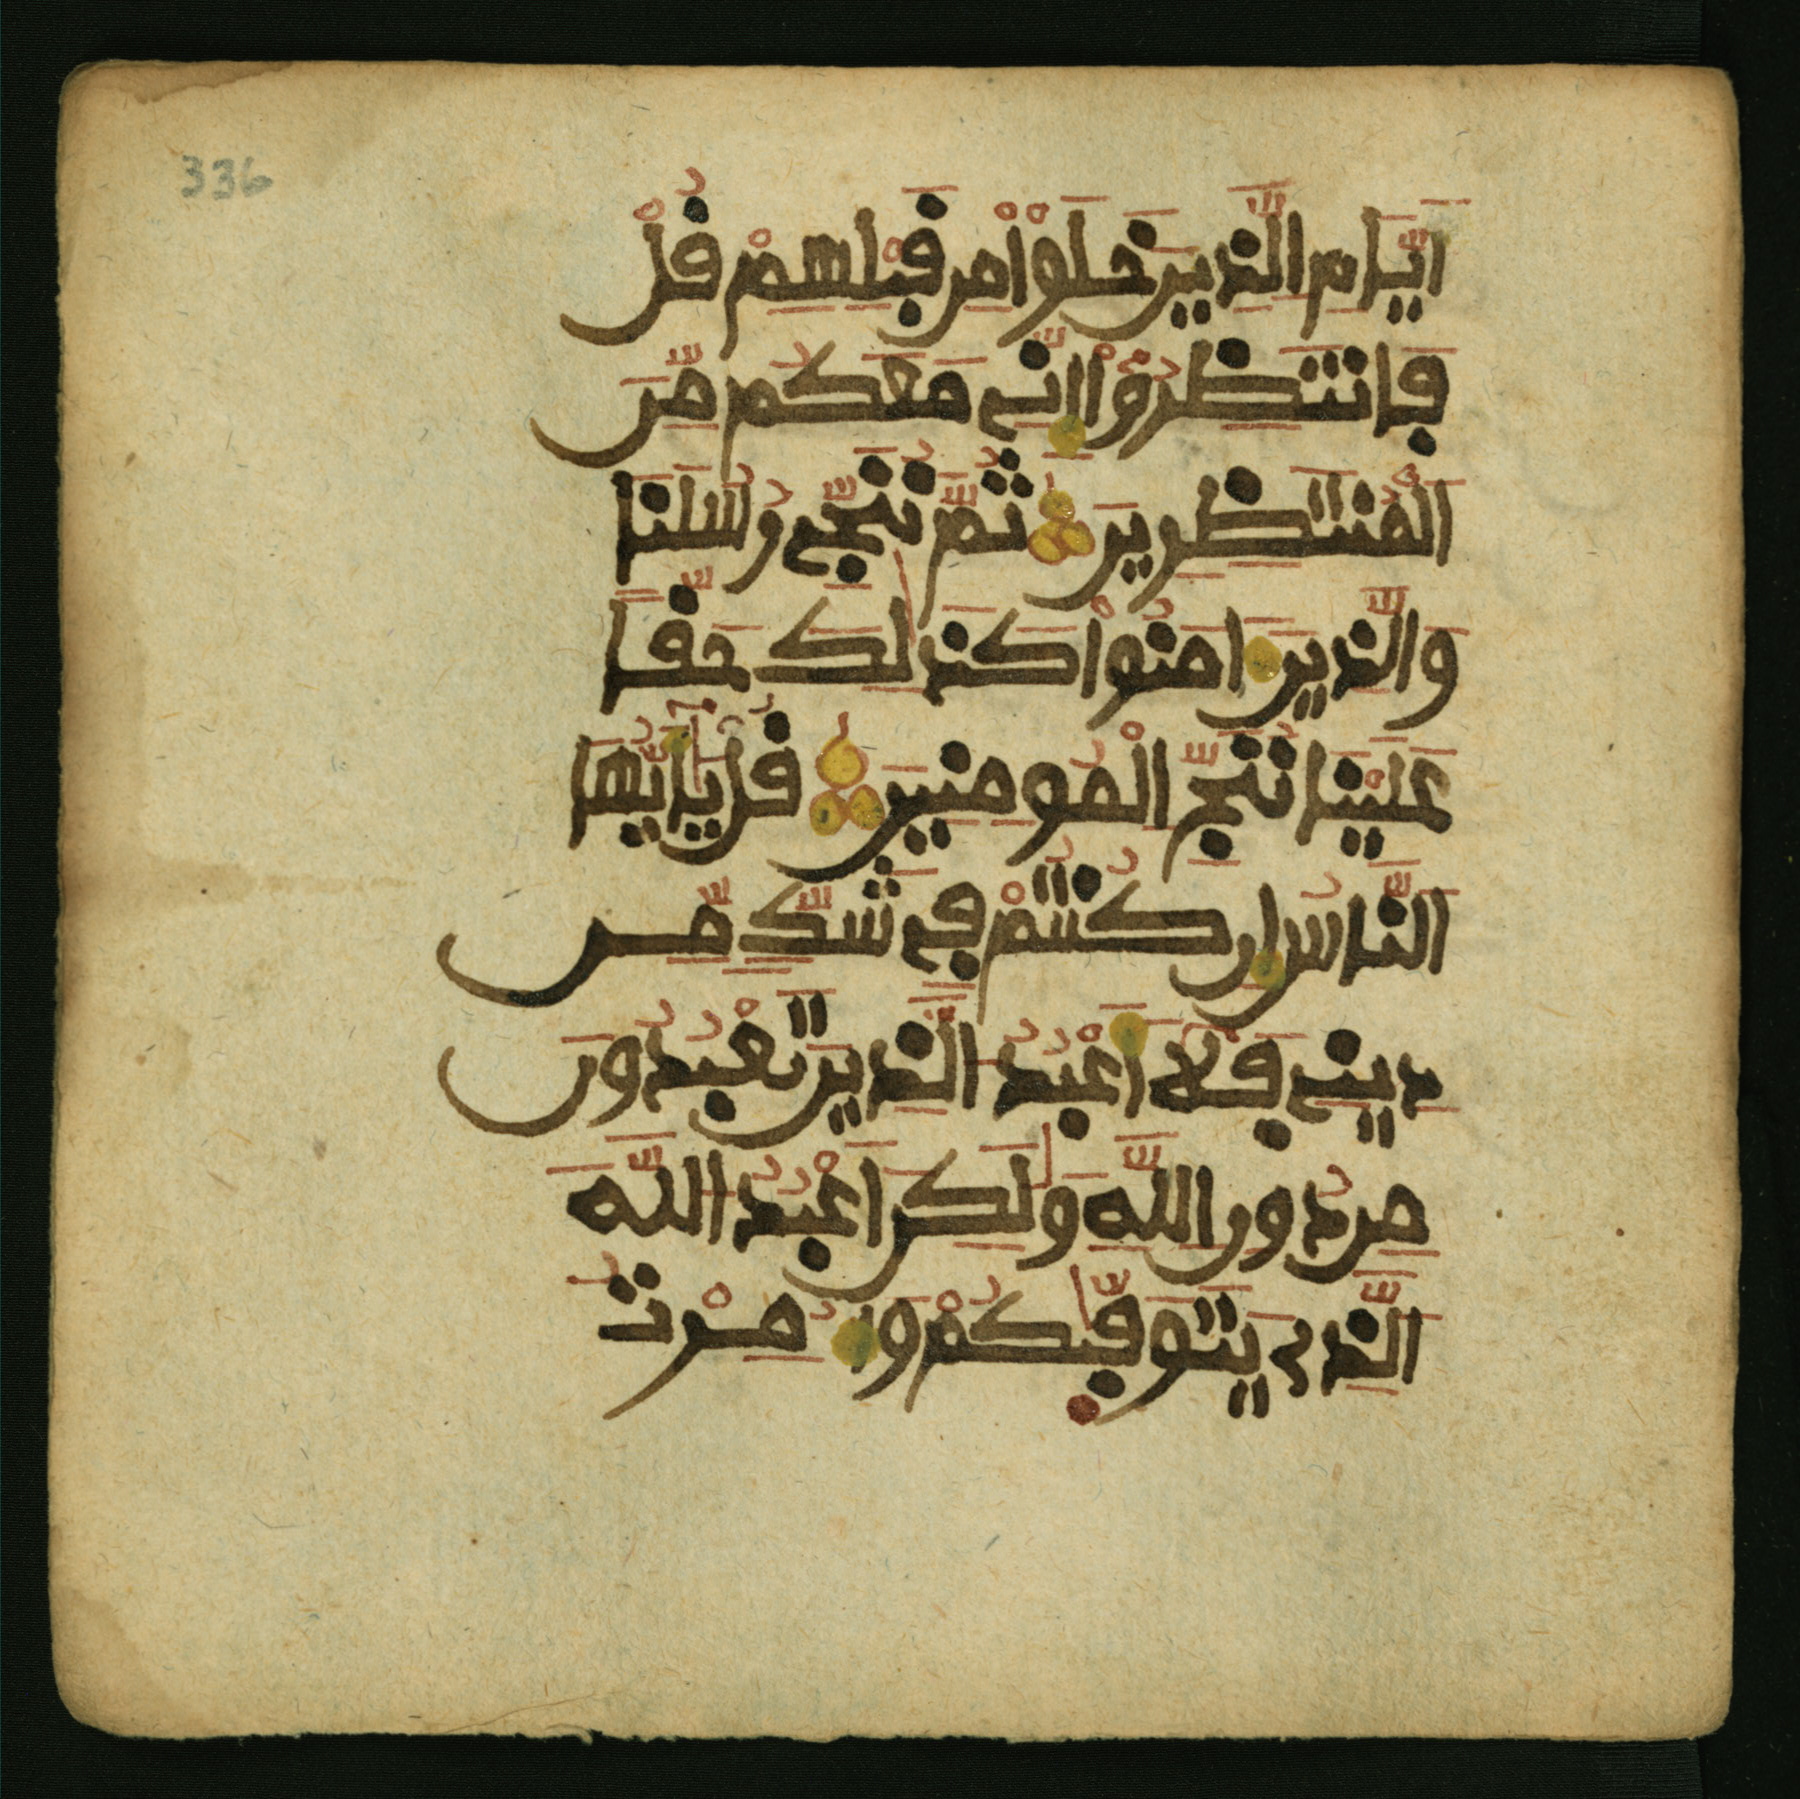 336
اَيَّامِ الَّذِينَ خَلَوْاْ مِن قَبْلِهِمْ قُلْ
فَانتَظِرُوٓاْ إِنِّي مَعَكُم مِّنَ
اَلْمُنتَظِرِينَ ثُمَّ نُنَجِّي رُسُلَنَا
وَالَّذِينَ ءَامَنُواْ كَذَٰلِكَ حَقّاً
عَلَيْنَا نُنَجِّ الْمُومِنِينَ قُلْ يَٰٓأَيُّهَا
اَلنَّاسُ إِن كُنتُمْ فِي شَكٍّ مِّن
دِينِي فَلَآ أَعْبُدُ الَّذِينَ تَعْبُدُونَ
مِن دُونِ اللَّهِ وَلَٰكِنَ اَعْبُدُ اللَّهَ
اَلَّذِي يَتَوَفَّيٰكُمْ وَأُمِرْتُ